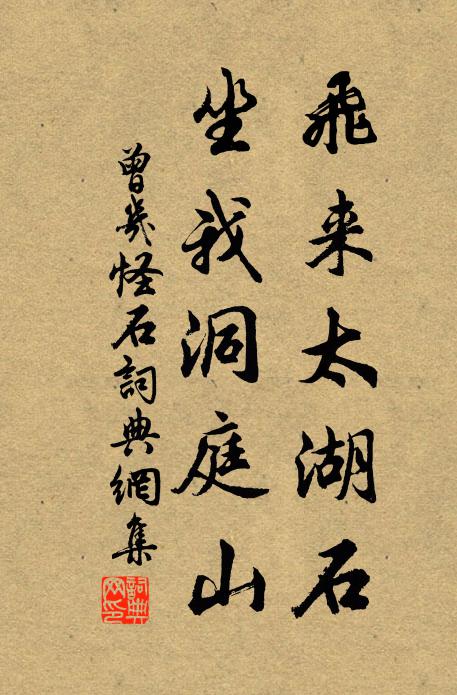 飛来太湖石
坐我洞庭山
曾幾怪石詞典網集
詞典網印